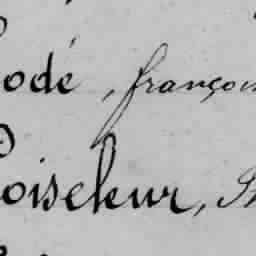 odé, françoi
oiseleur,